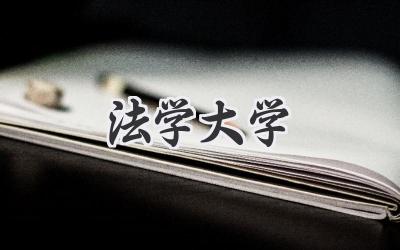 法学大学